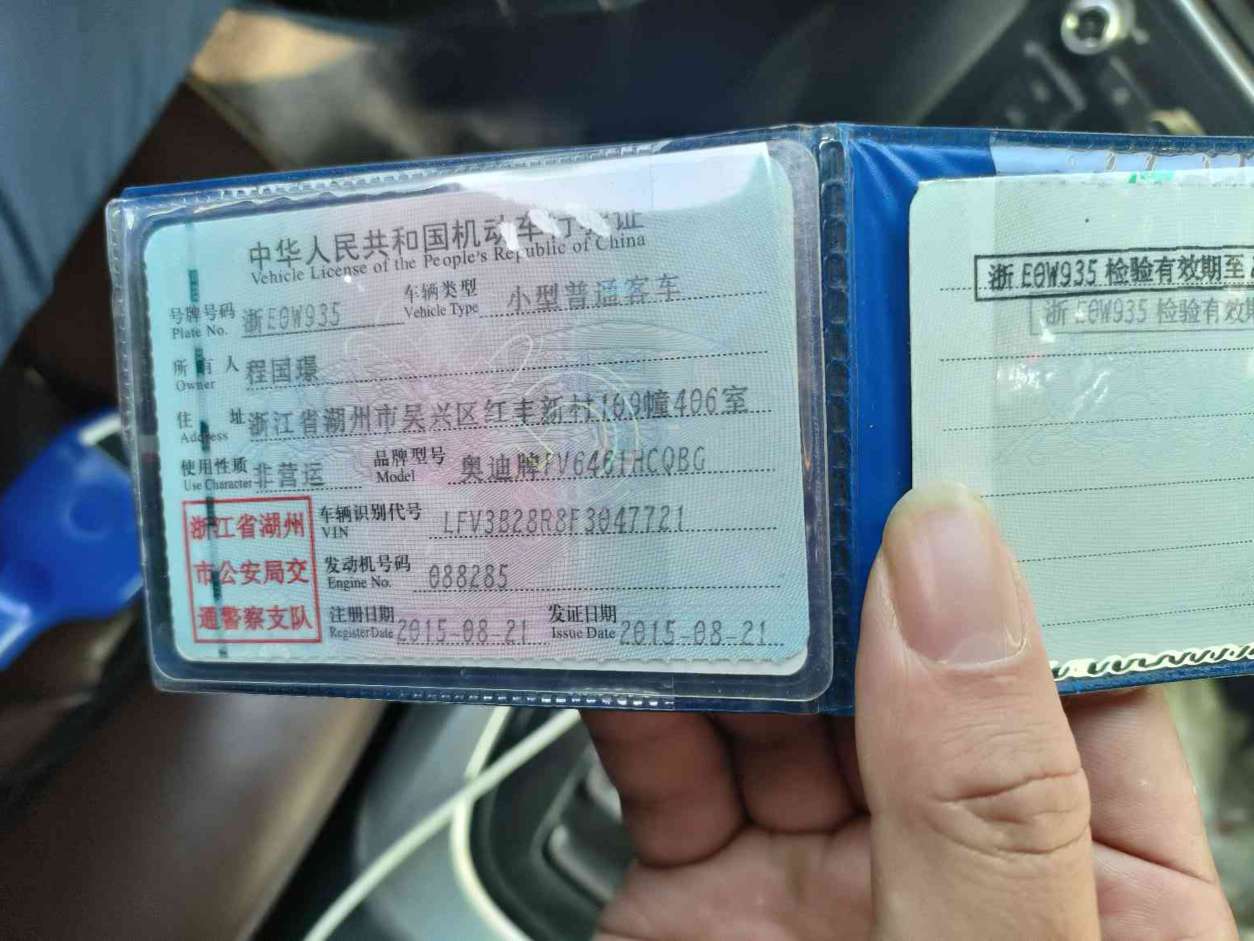 中华人民共和国机动车行驶证
Vehicle License of the People's Republic of China
号牌号码 浙E0W935 车辆类型 小型普通客车
Plate No. Vehicle Type
所有人 程国璟
Owner
住址 浙江省湖州市吴兴区红丰新村109幢406室
Address
使用性质 非营运 品牌型号 奥迪牌FV6461HCQBG
Use Character Model
浙江省湖州
市公安局交
通警察支队
车辆识别代号 LFV3B28R8F3047721
VIN
发动机号码 088285
Engine No.
注册日期 2015-08-21 发证日期 2015-08-21
Register Date Issue Date
浙E0W935 检验有效期至
浙E0W935 检验有效